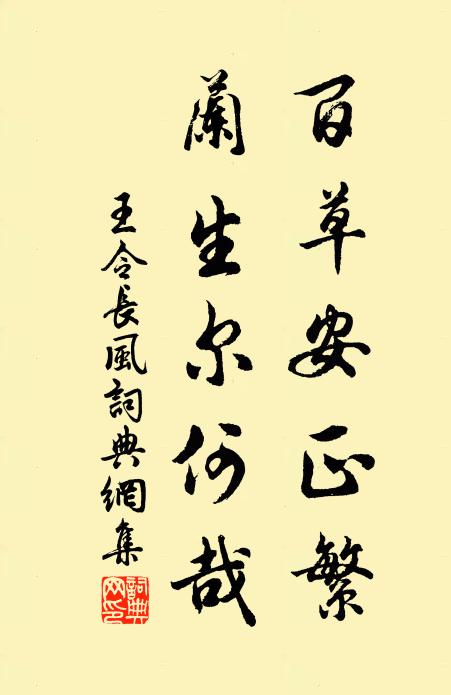 百草安正繁
蘭生尔何哉
王令長風詞典網集
詞典
網印